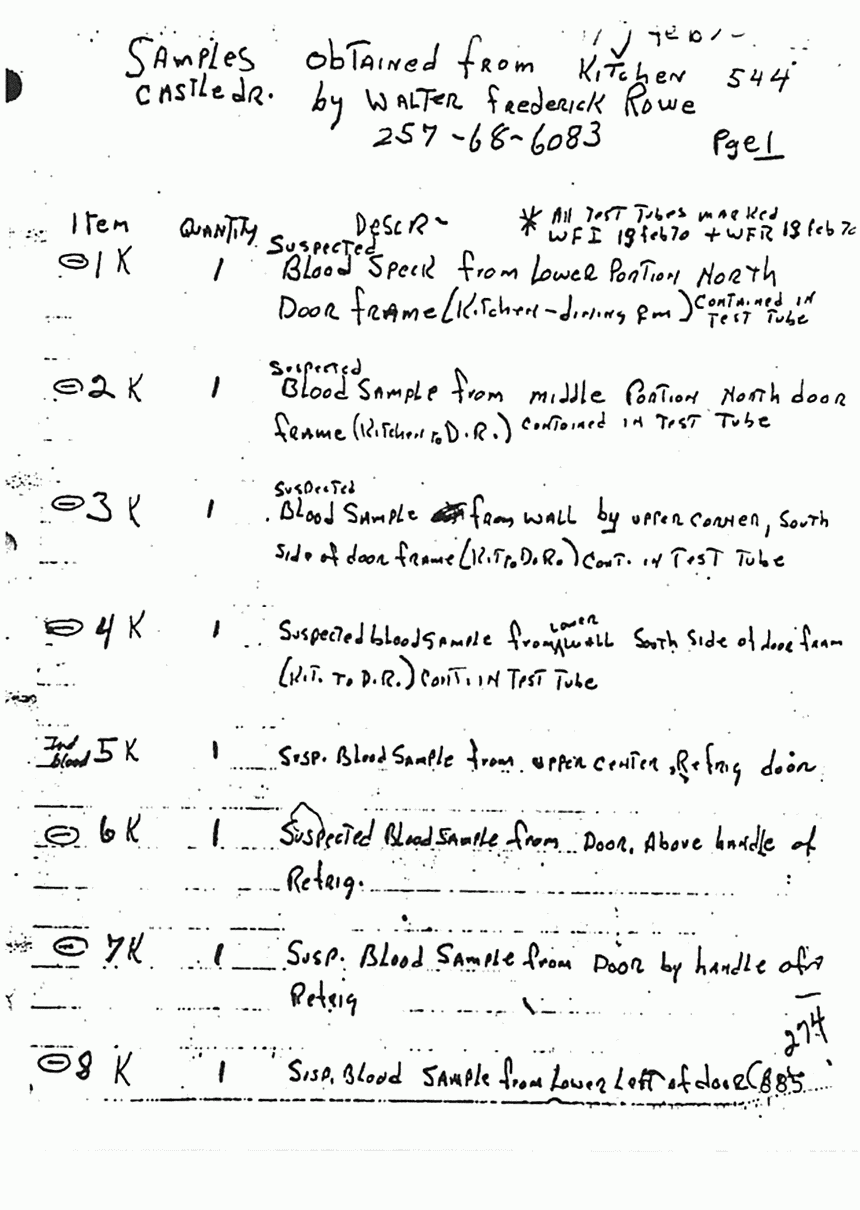 SAMPLES ObTAINEd from KITCHEN 544
CASTLE dR. by WALTER FredERICK Rowe
257-68-6083 Pge 1
Item QUANTITY DescR ~ * All TEST Tubes marked
WFI 19 feb 70 + WFR 19 feb 70
⊖ 1 K 1 Suspected
Blood Speck from Lower PORTION North
Door frame (Kitchen-dining Rm) CONTAINED IN
TEST Tube
⊖ 2 K 1 Suspected
Blood Sample from middle PORTION North door
frame (Kitchen to D.R.) contained IN TEST Tube
⊖ 3 K 1 Suspected
Blood Sample from WALL by upper corner, South
side of door frame (KIT to D.R.) CONT. IN TEST Tube
⊖ 4 K 1 Suspected blood Sample from lower WALL South Side of door fram
(KIT. TO D.R.) CONT. IN TEST Tube
Ind
blood 5 K 1 Susp. Blood Sample from upper center, Refrig door
⊖ 6 K 1 Suspected Blood Sample from Door, Above handle of
Refrig.
⊖ 7 K 1 Susp. Blood Sample from Door by handle of
Refrig
274
⊖ 8 K 1 Sisp. Blood SAMPLE from Lower Left of door (885